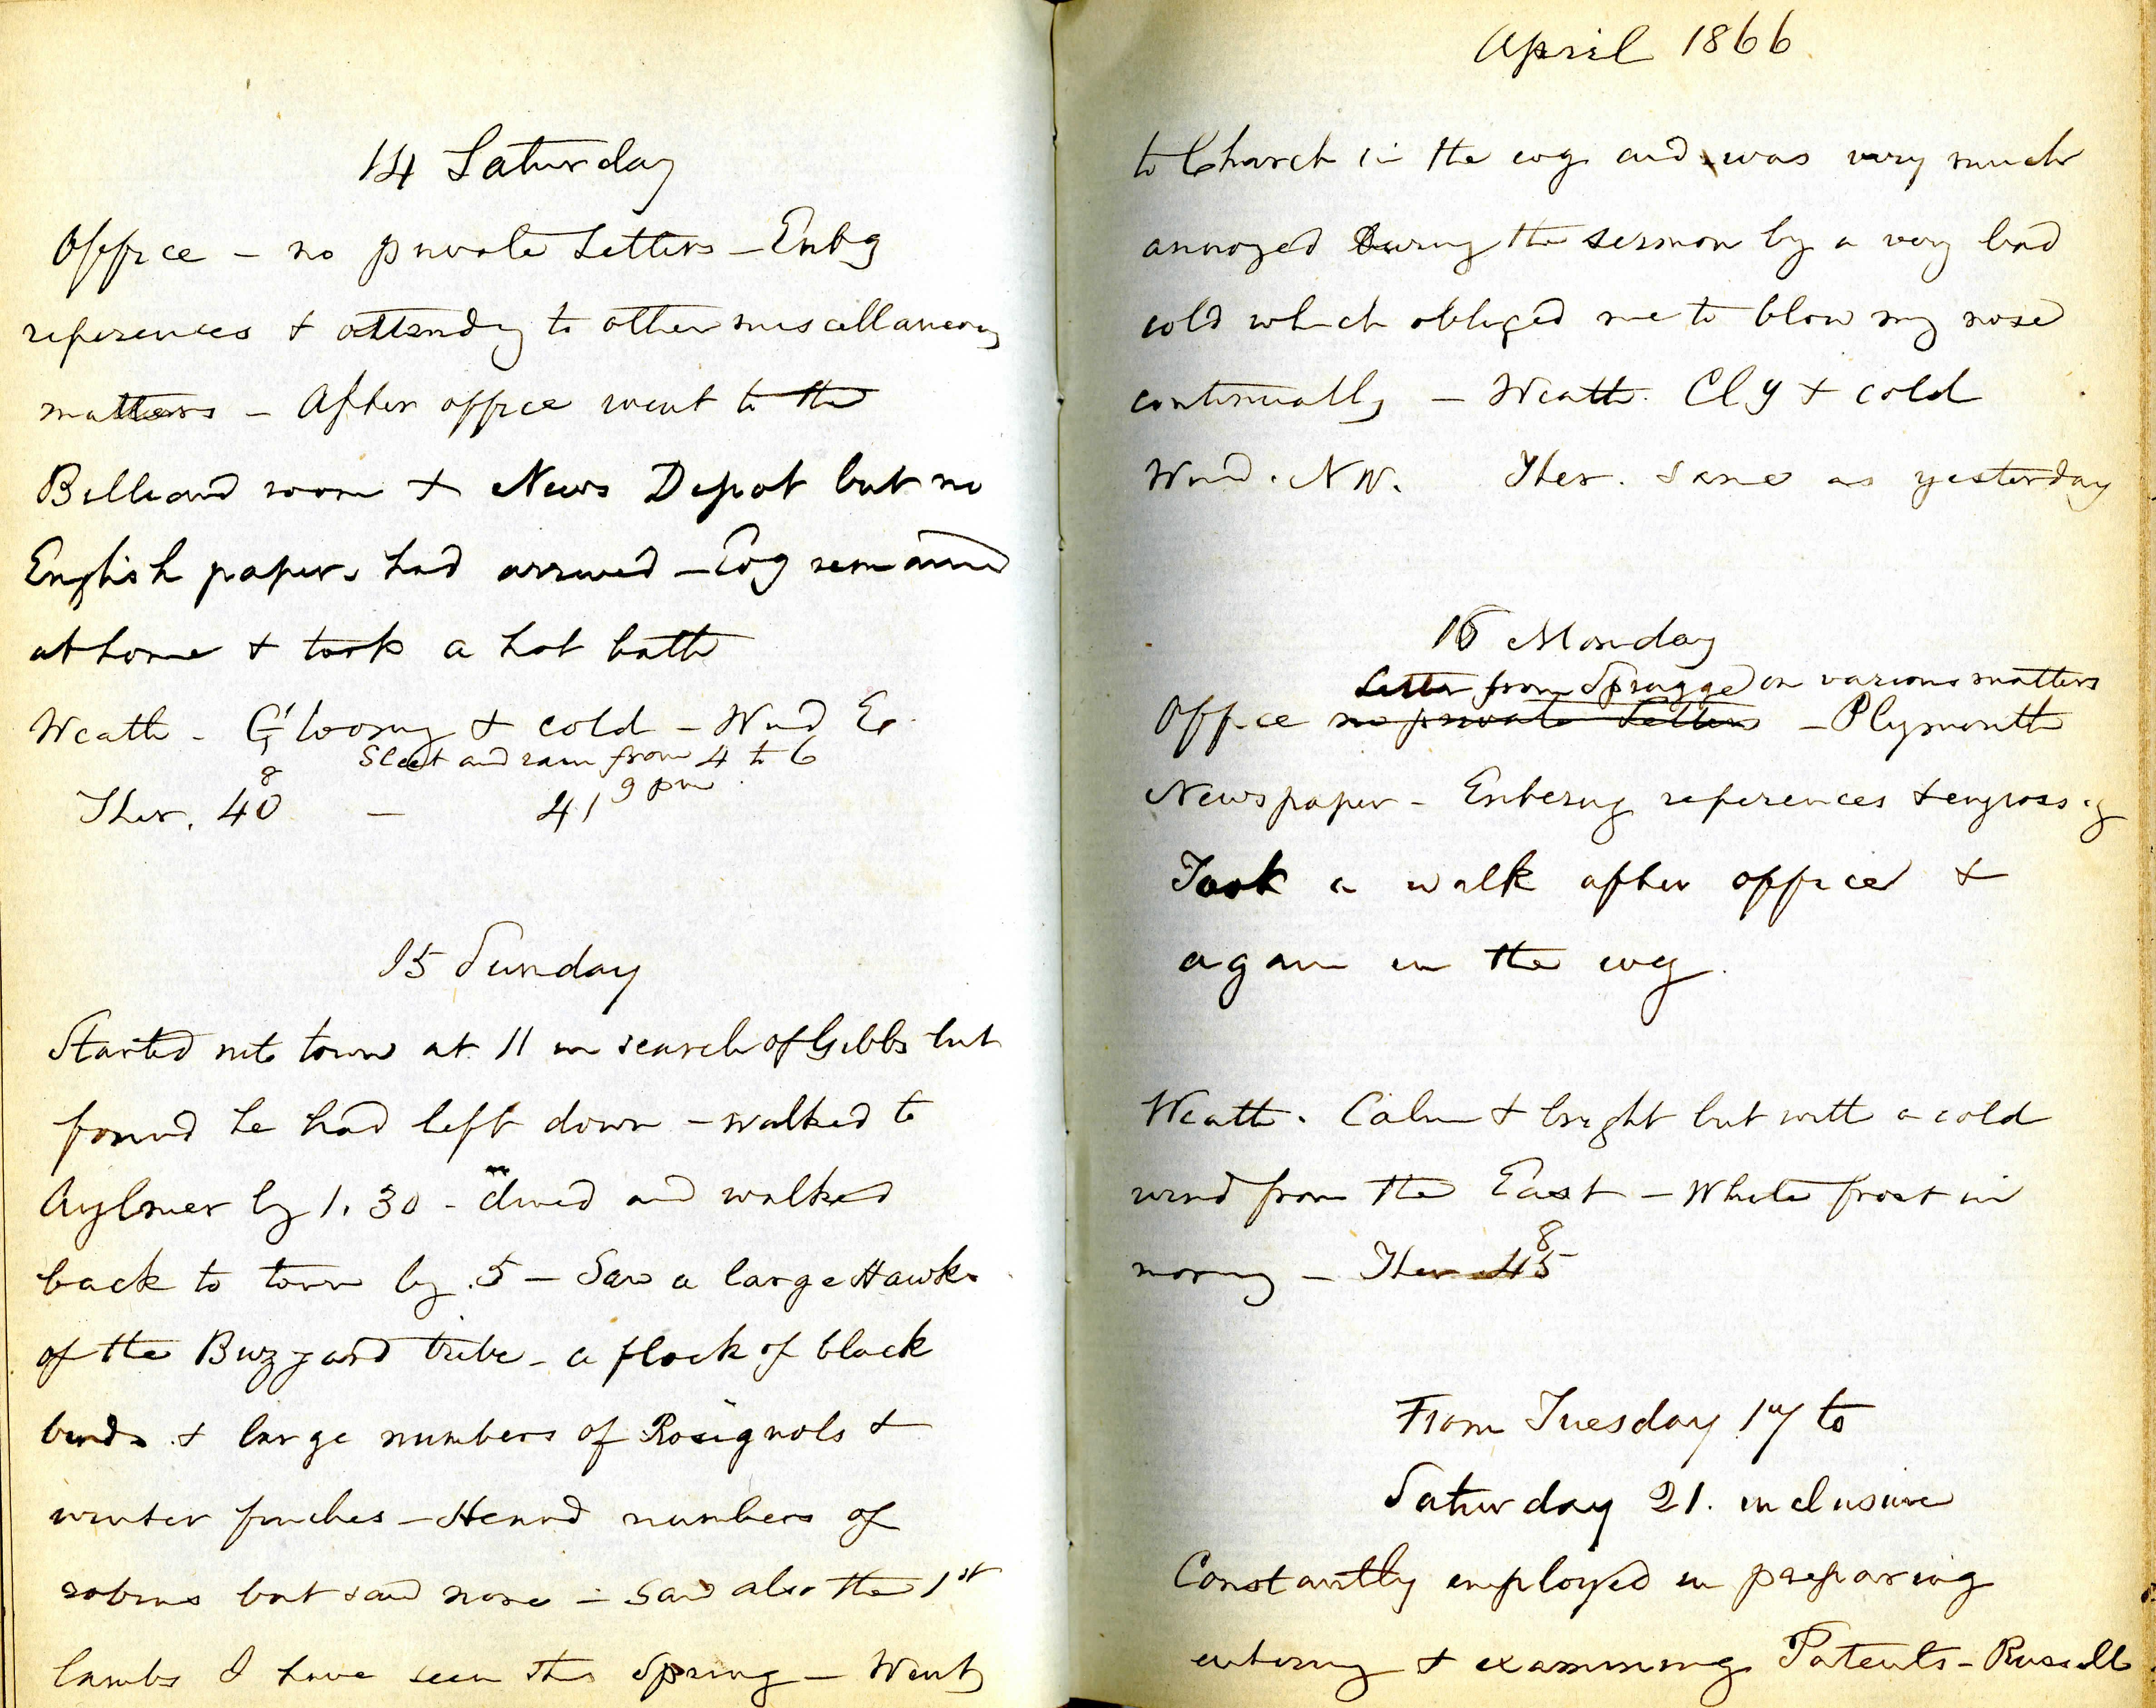 14 Saturday
Office - no private Letters - Entg
references & attendg to other miscellaneous
matters - After office went to the
Billiard room & News Depot but no
English papers had arrived - Evg remained
at home & took a hot bath
Weath - Gloomy & cold - Wind E.
Sleet and rain from 4 to 6
8 9 pm
Ther. 40 - 41
15 Sunday
Started into town at 11 in search of Gibbs but
found he had left down - walked to
Aylmer by 1.30 - dined and walked
back to town by 5 - Saw a large Hawk
of the Buzzard tribe - a flock of black
birds & large numbers of Rosignols &
winter finches - Heard numbers of
robins but saw none - Saw also the 1st
lambs I have seen this Spring - Went
April 1866
to Church in the evg and was very much
annoyed During the sermon by a very bad
cold which obliged me to blow my nose
continually - Weath. Cly & cold
Wind. NW. Ther. same as yesterday
16 Monday
Letter from Spragge on various matters
Office no private Letters - Plymouth
Newspaper - Entering references & engrossg
Took a walk after office &
again in the evg.
Weath. Calm & bright but with a cold
wind from the East - White frost in
8
morng - Ther 45
From Tuesday 17 to
Saturday 21. inclusive
Constantly employed in preparing
entering & examining Patents - Russell